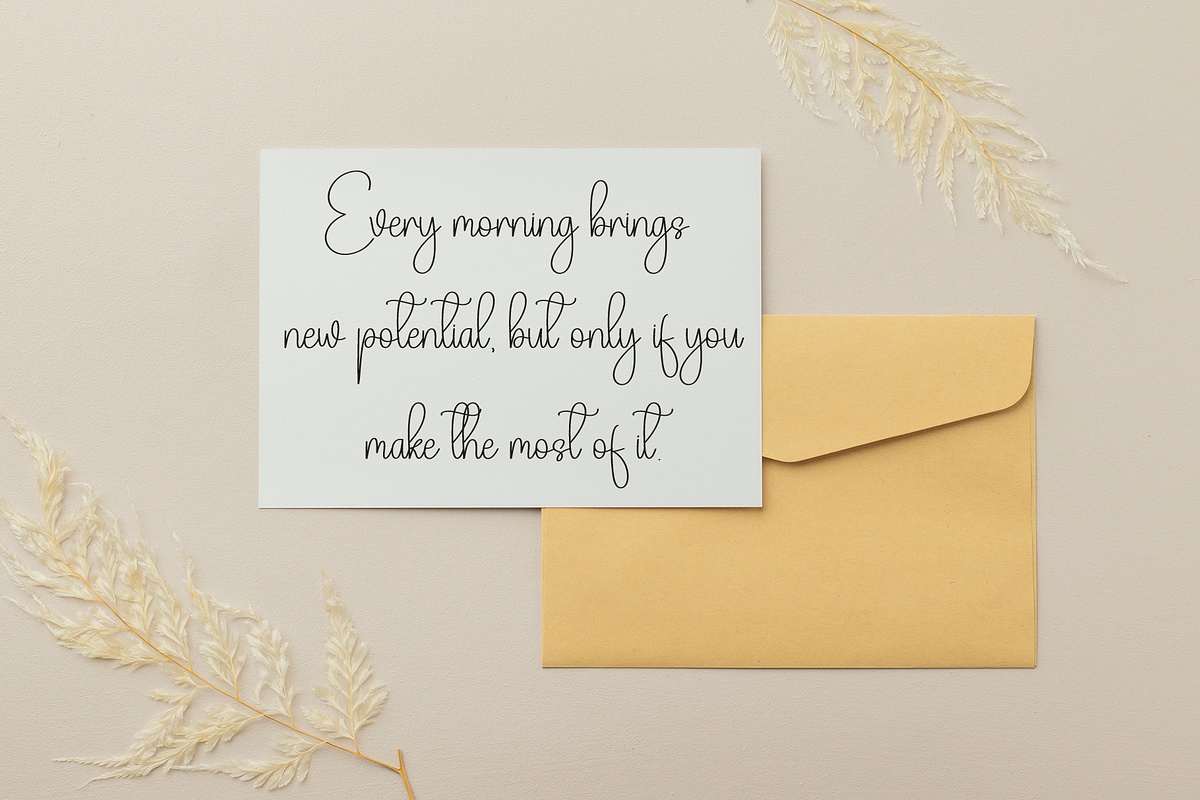 Every morning brings
new potential, but only if you
make the most of it.